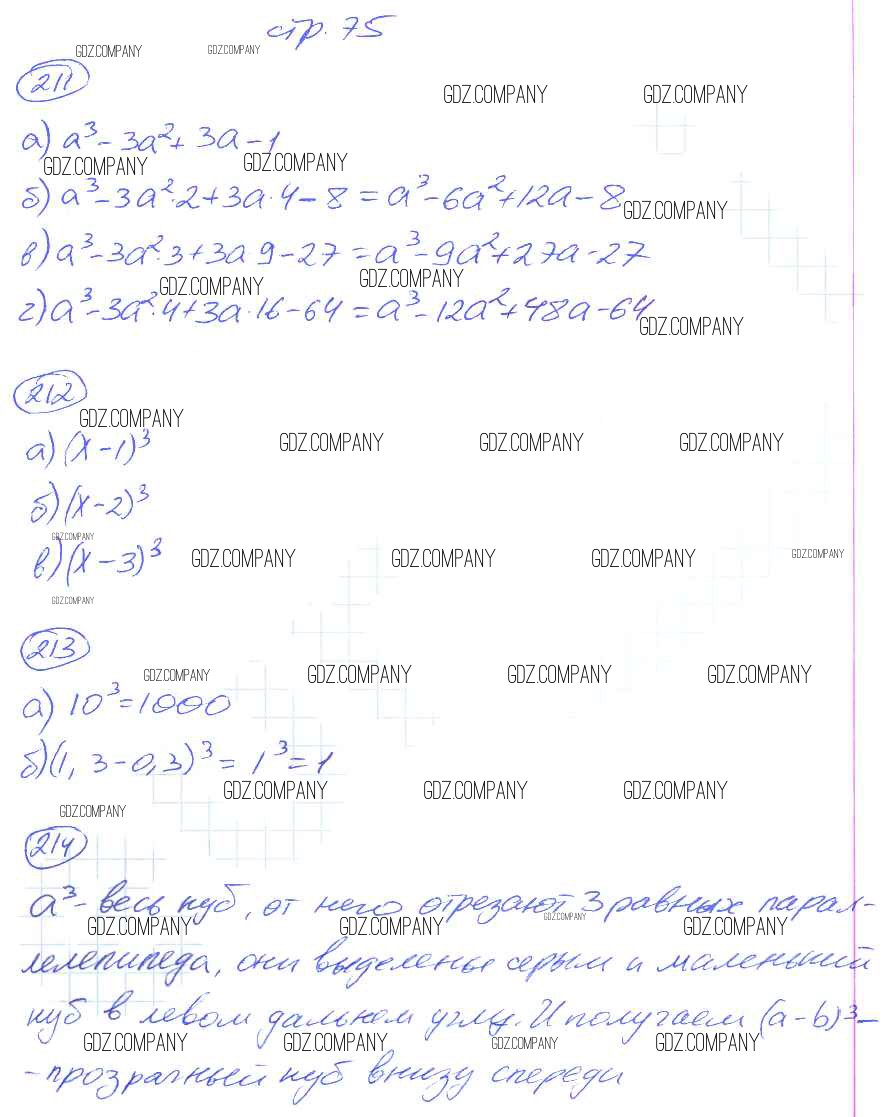 стр. 75
GDZ.COMPANY GDZ.COMPANY
211
GDZ.COMPANY GDZ.COMPANY
а) a³-3a²+3a-1
GDZ.COMPANY GDZ.COMPANY
б) a³-3a²·2+3a·4-8=a³-6a²+12a-8
GDZ.COMPANY
в) a³-3a²·3+3a 9-27=a³-9a²+27a-27
GDZ.COMPANY GDZ.COMPANY
г) a³-3a²·4+3a·16-64=a³-12a²+48a-64
GDZ.COMPANY
212
GDZ.COMPANY
а) (x-1)³
GDZ.COMPANY GDZ.COMPANY GDZ.COMPANY
б) (x-2)³
GDZ.COMPANY
в) (x-3)³
GDZ.COMPANY GDZ.COMPANY GDZ.COMPANY GDZ.COMPANY
GDZ.COMPANY
213
GDZ.COMPANY GDZ.COMPANY GDZ.COMPANY GDZ.COMPANY
а) 10³=1000
б) (1,3-0,3)³=1³=1
GDZ.COMPANY GDZ.COMPANY GDZ.COMPANY
GDZ.COMPANY
214
a³- весь куб, от него отрезают 3 равных парал-
GDZ.COMPANY GDZ.COMPANY GDZ.COMPANY GDZ.COMPANY
лелепипеда, они выделены серым и маленький
куб в левом дальнем углу. И получаем (a-b)³-
GDZ.COMPANY GDZ.COMPANY GDZ.COMPANY GDZ.COMPANY
-прозрачный куб внизу спереди